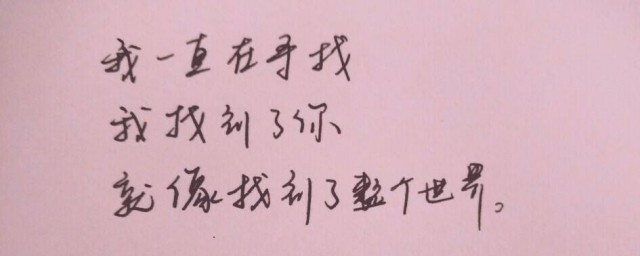 我一直在寻找
我找到了你、
就像找到了整个世界。